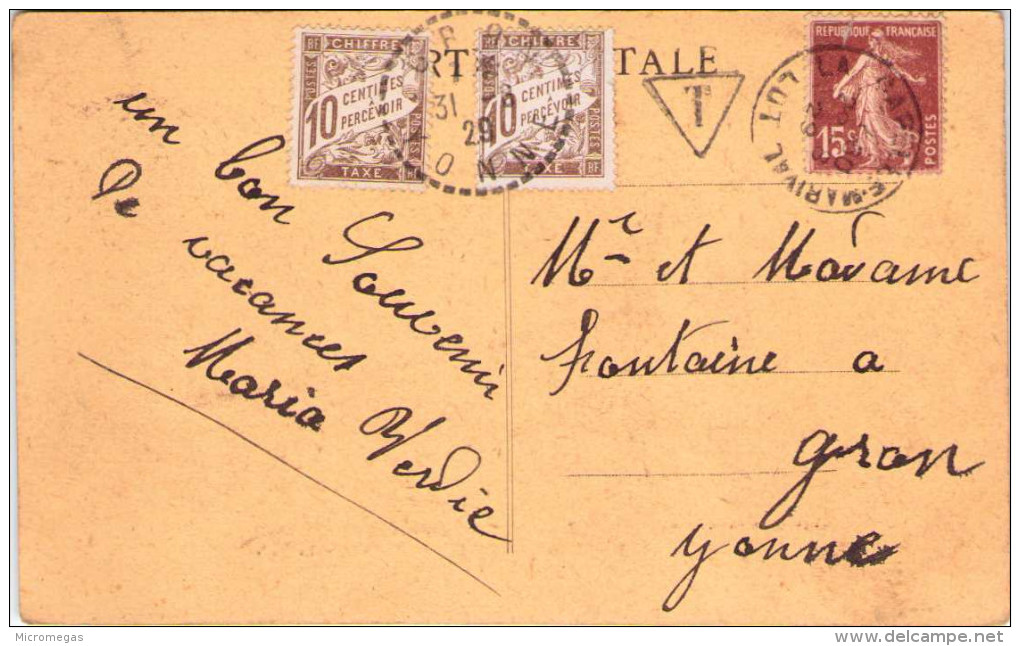 CARTE POSTALE
RF CHIFFRE
POSTES
10 CENTIMES
À
PERCEVOIR
TAXE
RF CHIFFRE
10 CENTIMES
À
PERCEVOIR
POSTES
TAXE
31
29
YONNE
T
REPUBLIQUE FRANÇAISE
15c
POSTES
LOT
MARIVAL
un bon Souvenir
De vacances
Maria Verdie
Mr et Madame
Fontaine a
gron
yonne
Micromegas
delcampe.net